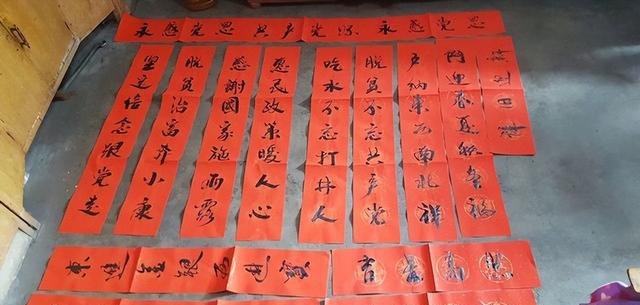 永感党恩共产党深永感党恩
门迎春夏秋冬福
户纳东西南北祥
脱贫不忘共产党
吃水不忘打井人
惠民政策暖人心
感謝國家施雨露
脱贫治富奔小康
坚定信念跟党走
吉星高照